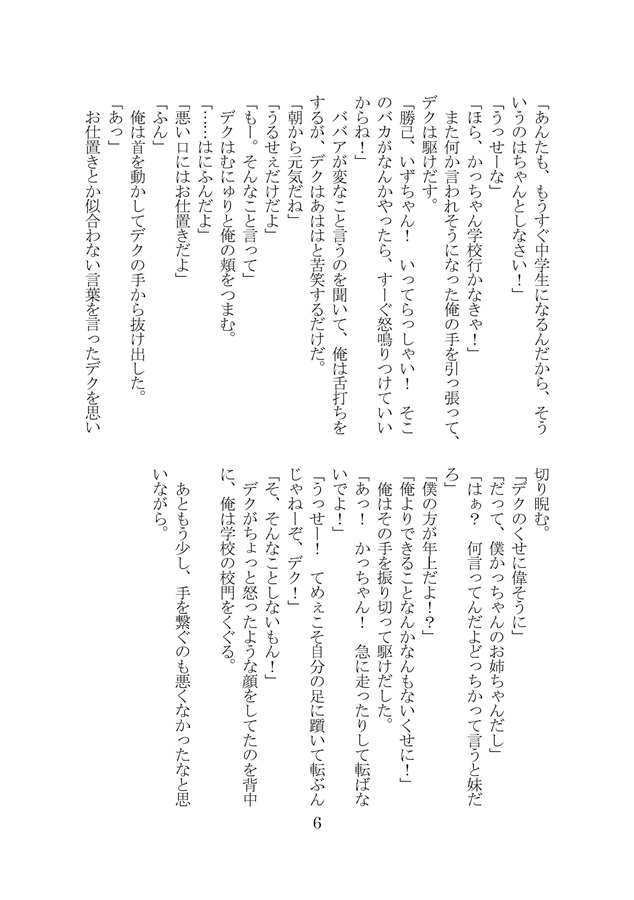 「あんたも、もうすぐ中学生になるんだから、そう
いうのはちゃんとしなさい！」
「うっせーな」
「ほら、かっちゃん学校行かなきゃ！」
また何か言われそうになった俺の手を引っ張って、
デクは駆けだす。
「勝己、いずちゃん！　いってらっしゃい！　そこ
のバカがなんかやったら、すーぐ怒鳴りつけていい
からね！」
ババアが変なこと言うのを聞いて、俺は舌打ちを
するが、デクはあははと苦笑するだけだ。
「朝から元気だね」
「うるせぇだけだよ」
「もー。そんなこと言って」
デクはむにゅりと俺の頬をつまむ。
「……はにふんだよ」
「悪い口にはお仕置きだよ」
「ふん」
俺は首を動かしてデクの手から抜け出した。
「あっ」
お仕置きとか似合わない言葉を言ったデクを思い
切り睨む。
「デクのくせに偉そうに」
「だって、僕かっちゃんのお姉ちゃんだし」
「はぁ？　何言ってんだよどっちかって言うと妹だ
ろ」
「僕の方が年上だよ！？」
「俺よりできることなんかなんもないくせに！」
俺はその手を振り切って駆けだした。
「あっ！　かっちゃん！　急に走ったりして転ばな
いでよ！」
「うっせー！　てめぇこそ自分の足に躓いて転ぶん
じゃねーぞ、デク！」
「そ、そんなことしないもん！」
デクがちょっと怒ったような顔をしてたのを背中
に、俺は学校の校門をくぐる。
あともう少し、手を繋ぐのも悪くなかったなと思
いながら。
6